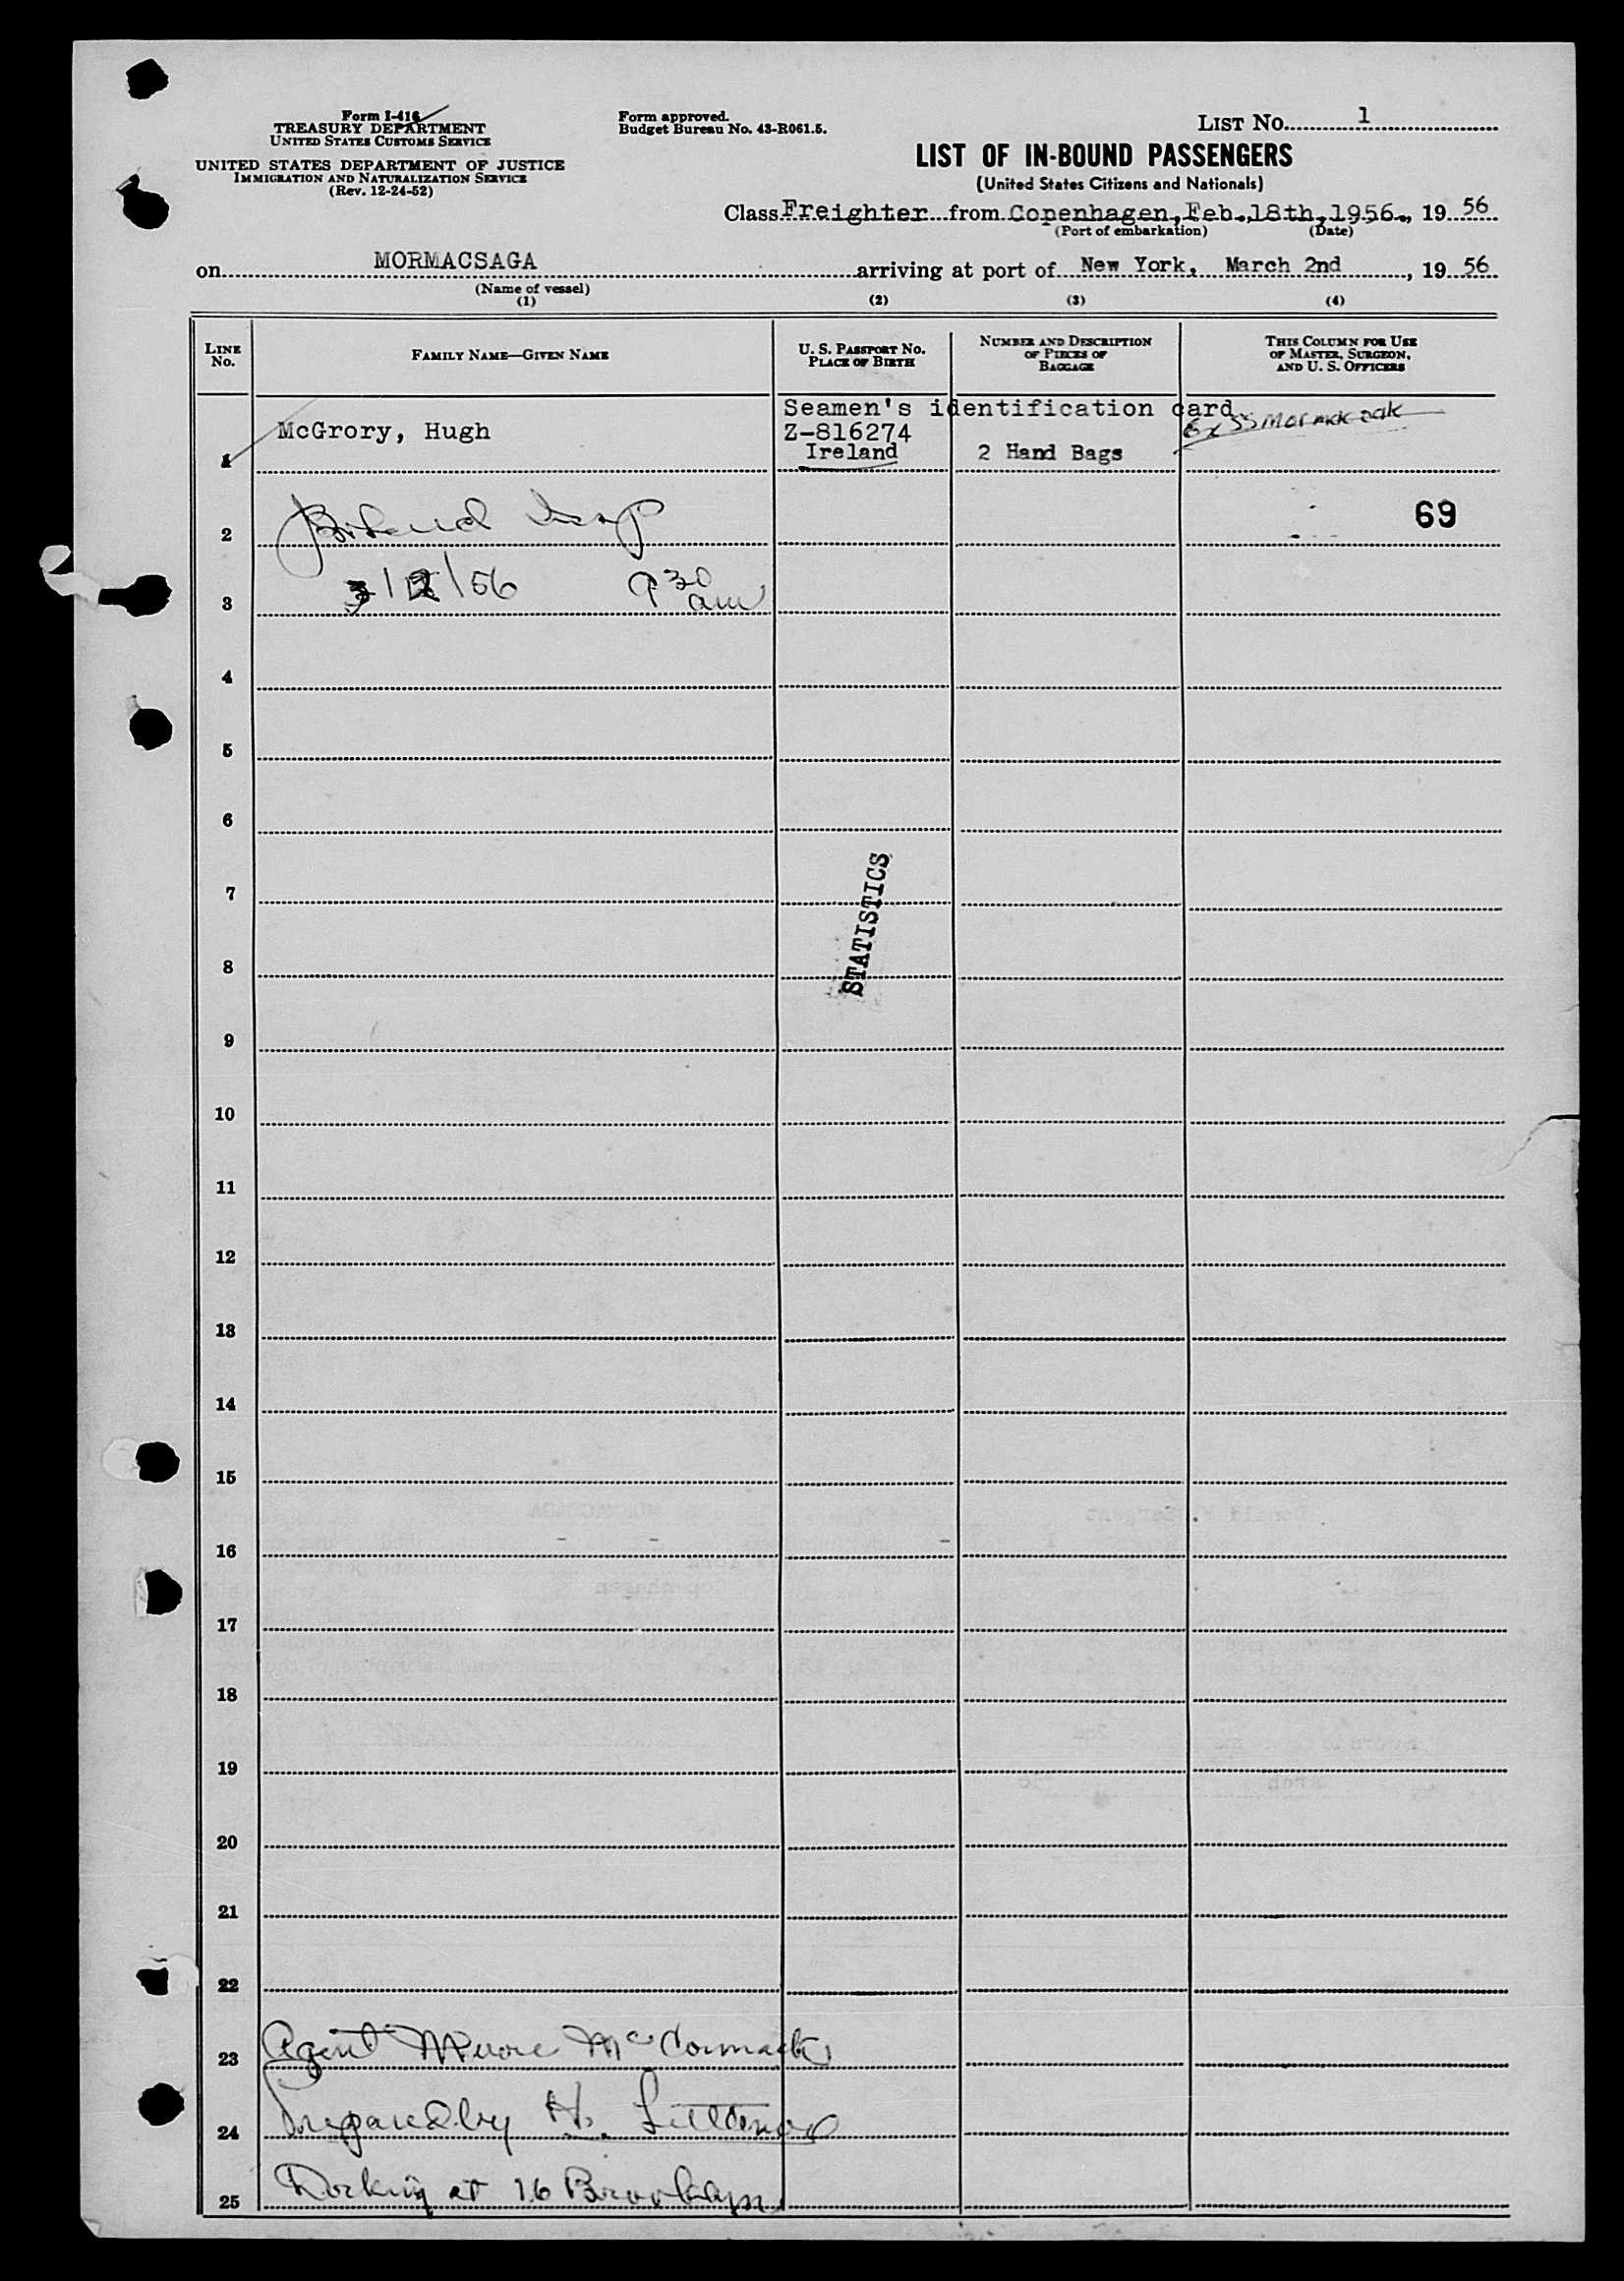 Form I-416
TREASURY DEPARTMENT
UNITED STATES CUSTOMS SERVICE
UNITED STATES DEPARTMENT OF JUSTICE
IMMIGRATION AND NATURALIZATION SERVICE
(Rev. 12-24-52)
Form approved.
Budget Bureau No. 43-R061.5.
LIST NO. 1
LIST OF IN-BOUND PASSENGERS
(United States Citizens and Nationals)
Class Freighter from Copenhagen, Feb. 18th, 1956., 19 56
(Port of embarkation) (Date)
on MORMACSAGA arriving at port of New York, March 2nd, 19 56
(Name of vessel)
(1) (2) (3) (4)
LINE NO.
FAMILY NAME—GIVEN NAME
U. S. PASSPORT NO.
PLACE OF BIRTH
NUMBER AND DESCRIPTION
OF PIECES OF
BAGGAGE
THIS COLUMN FOR USE
OF MASTER, SURGEON,
AND U. S. OFFICERS
Seamen's identification card
1 McGrory, Hugh Z-816274
Ireland 2 Hand Bags
Ex SS Mormacoak
2 69
3 3/2/56 9 30 am
4
5
6
7
STATISTICS
8
9
10
11
12
13
14
15
16
17
18
19
20
21
22
23 Agent Moore McCormack
24 Prepared by H.
25 Docking at 16 Brooklyn